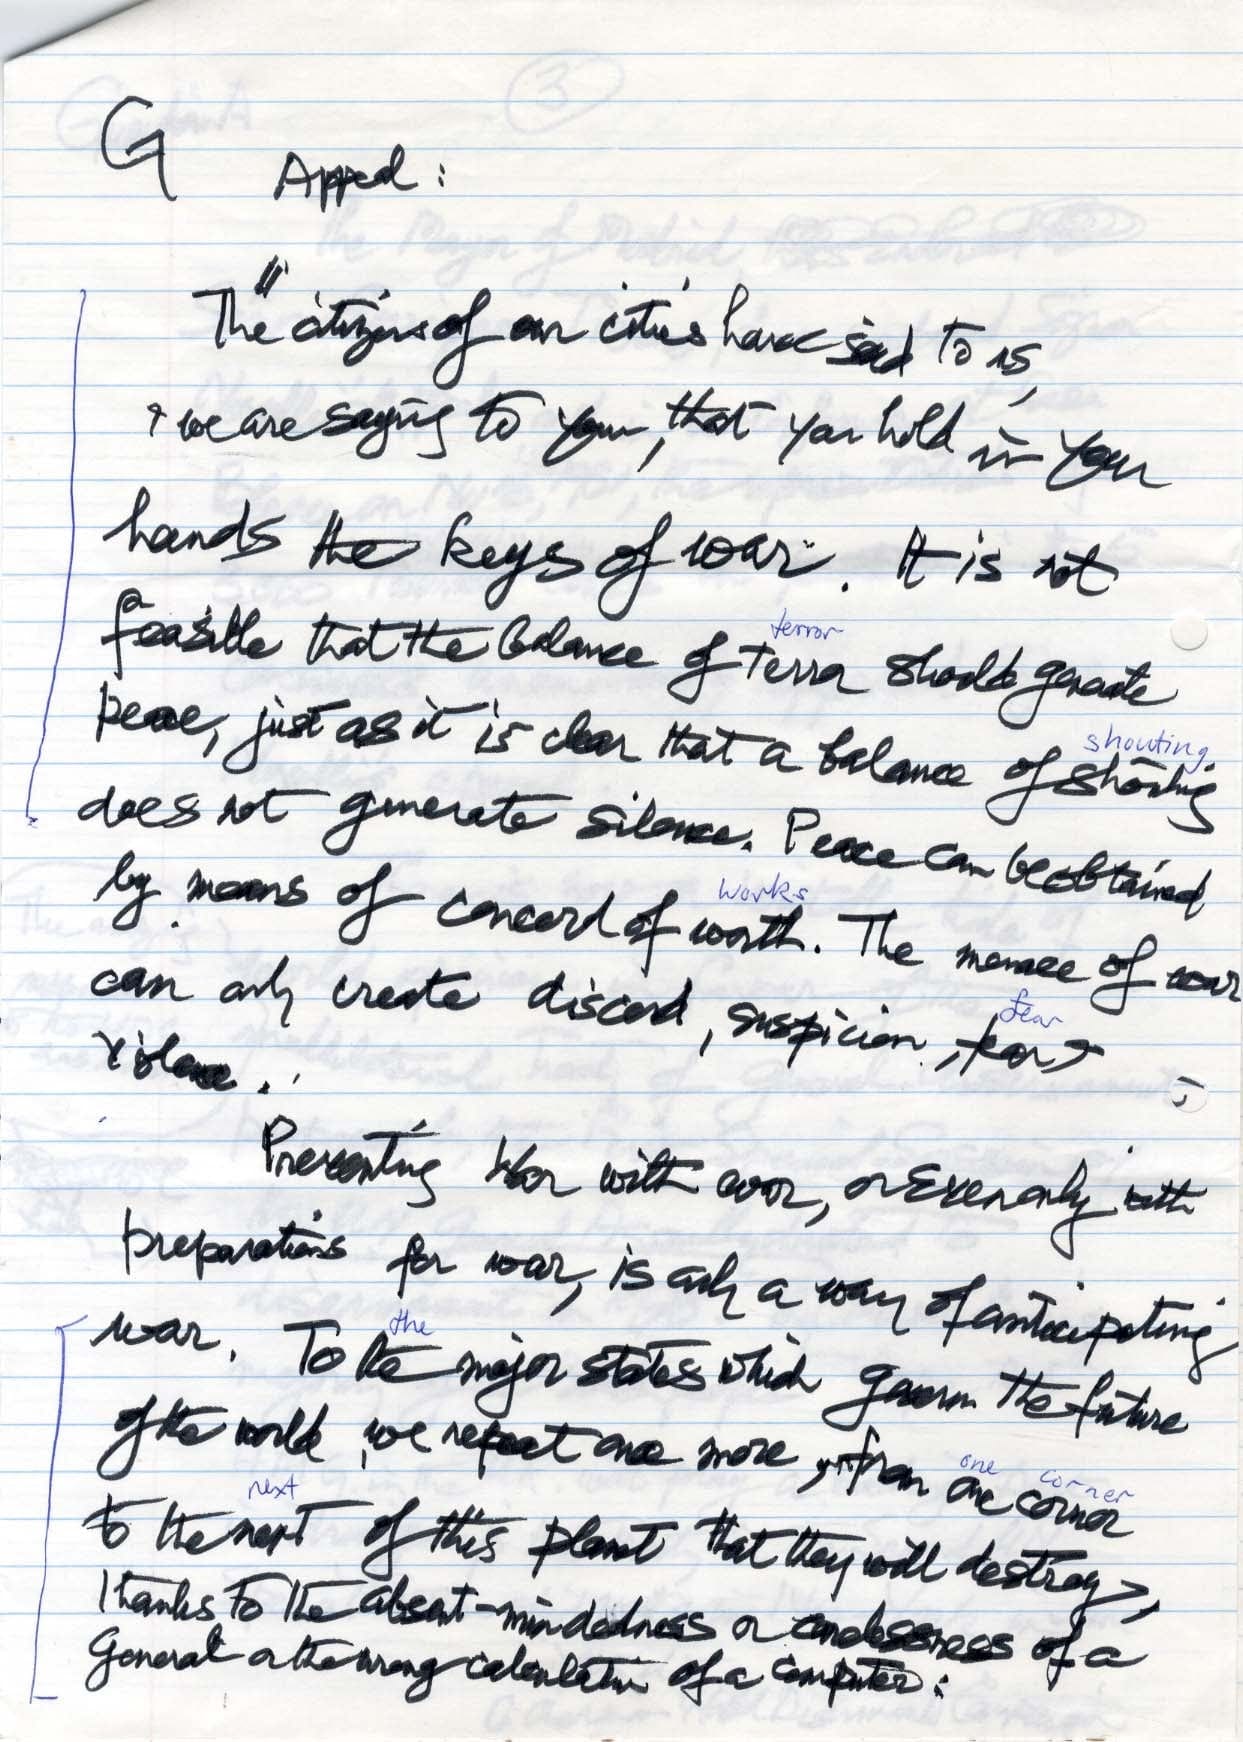 G
Appeal:
"The citizens of our cities have said to us,
+ we are saying to you, that you hold in your
hands the keys of war. It is not
terror
feasible that the balance of terror should generate
shouting
peace, just as it is clear that a balance of shouting
does not generate silence. Peace can be obtained
works
by means of concord of worth. The menace of war
fear
can only create discord, suspicion, fear +
violence.
Preventing war with war, or even only with
preparations for war, is only a way of anticipating
the
war. To the major states which govern the future
one corner
of the world, we repeat once more, from one corner
next
to the next of this planet that they will destroy,
thanks to the absent-mindedness or carelessness of a
General or the wrong calculation of a computer: